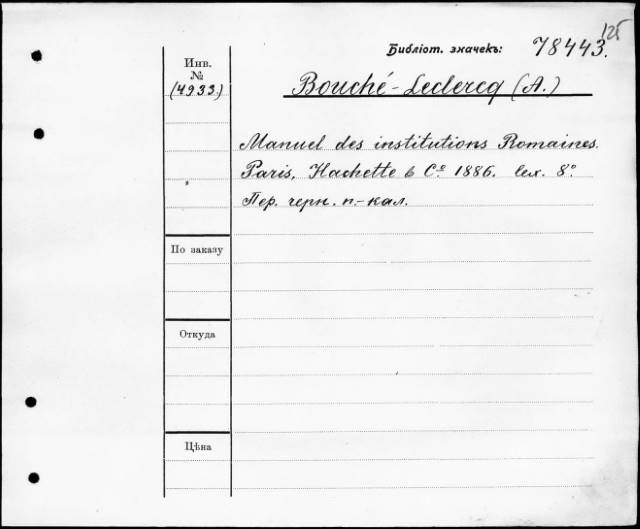 125
Библіот. значекъ: 78443.
Инв.
№
(4933)
Bouché-Leclercq (A.)
Manuel des institutions Romaines.
Paris, Hachette & Cº 1886. lex. 8º
Пер. черн. п.-кал.
По заказу
Откуда
Цѣна